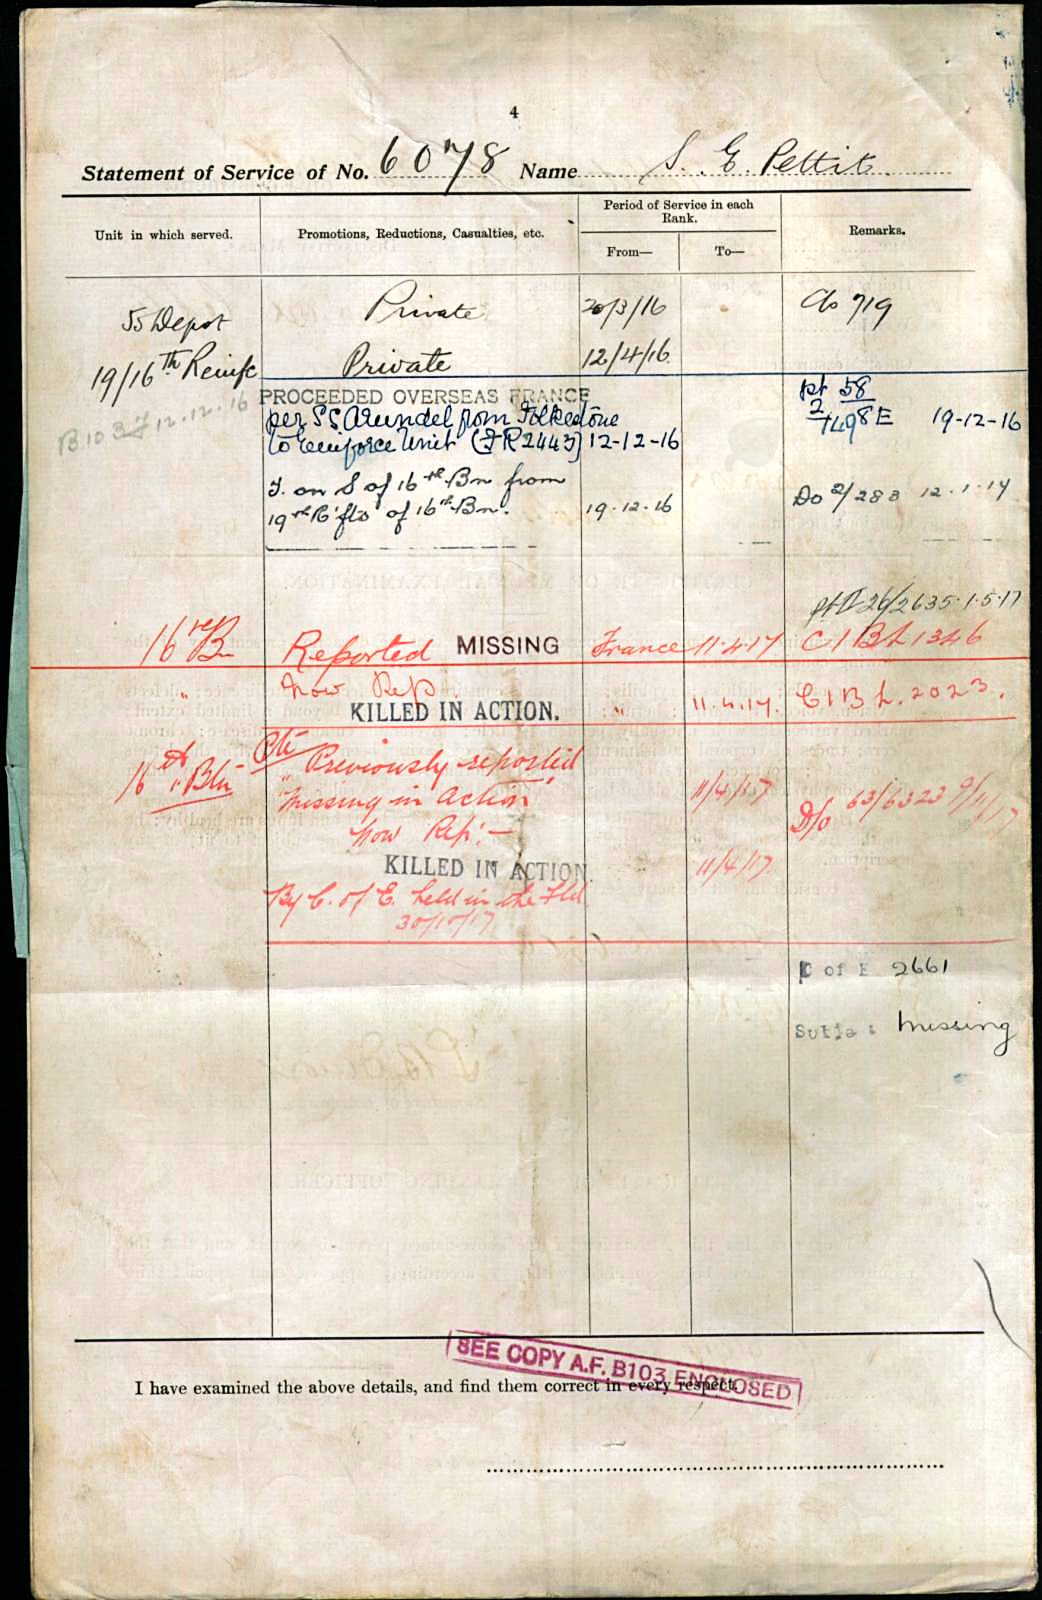 4
Statement of Service of No. 6078 Name S. E. Pettit
Unit in which served.
Promotions, Reductions, Casualties, etc.
Period of Service in each Rank.
From—
To—
Remarks.
55 Depot Private 20/3/16 719
19/16th Reinfc Private 12/4/16.
B103 12.12.16
PROCEEDED OVERSEAS FRANCE
per SS Arundel from Folkestone
to reinforce Unit (FR2443) 12-12-16
pt 58
2/7498E 19-12-16
T. on S of 16th Bn from
19th R'fts of 16th Bn. 19.12.16 Do 2/288 12.1.17
pt II 26/2635.1.5.17
16th Bn Reported MISSING France 11.4.17 C1BL1346
" Now Rep. KILLED IN ACTION. " 11.4.17. C1BL.2023.
16th Btn Pte Previously reported
"Missing in Action" 11/4/17 D/o 63/6323 9/11/17
Now Rep:—
KILLED IN ACTION. 11/4/17.
By C. of E. held in the Fld
30/10/17
C of E 2661
Missing
SEE COPY A.F. B103 ENCLOSED
I have examined the above details, and find them correct in every respect.